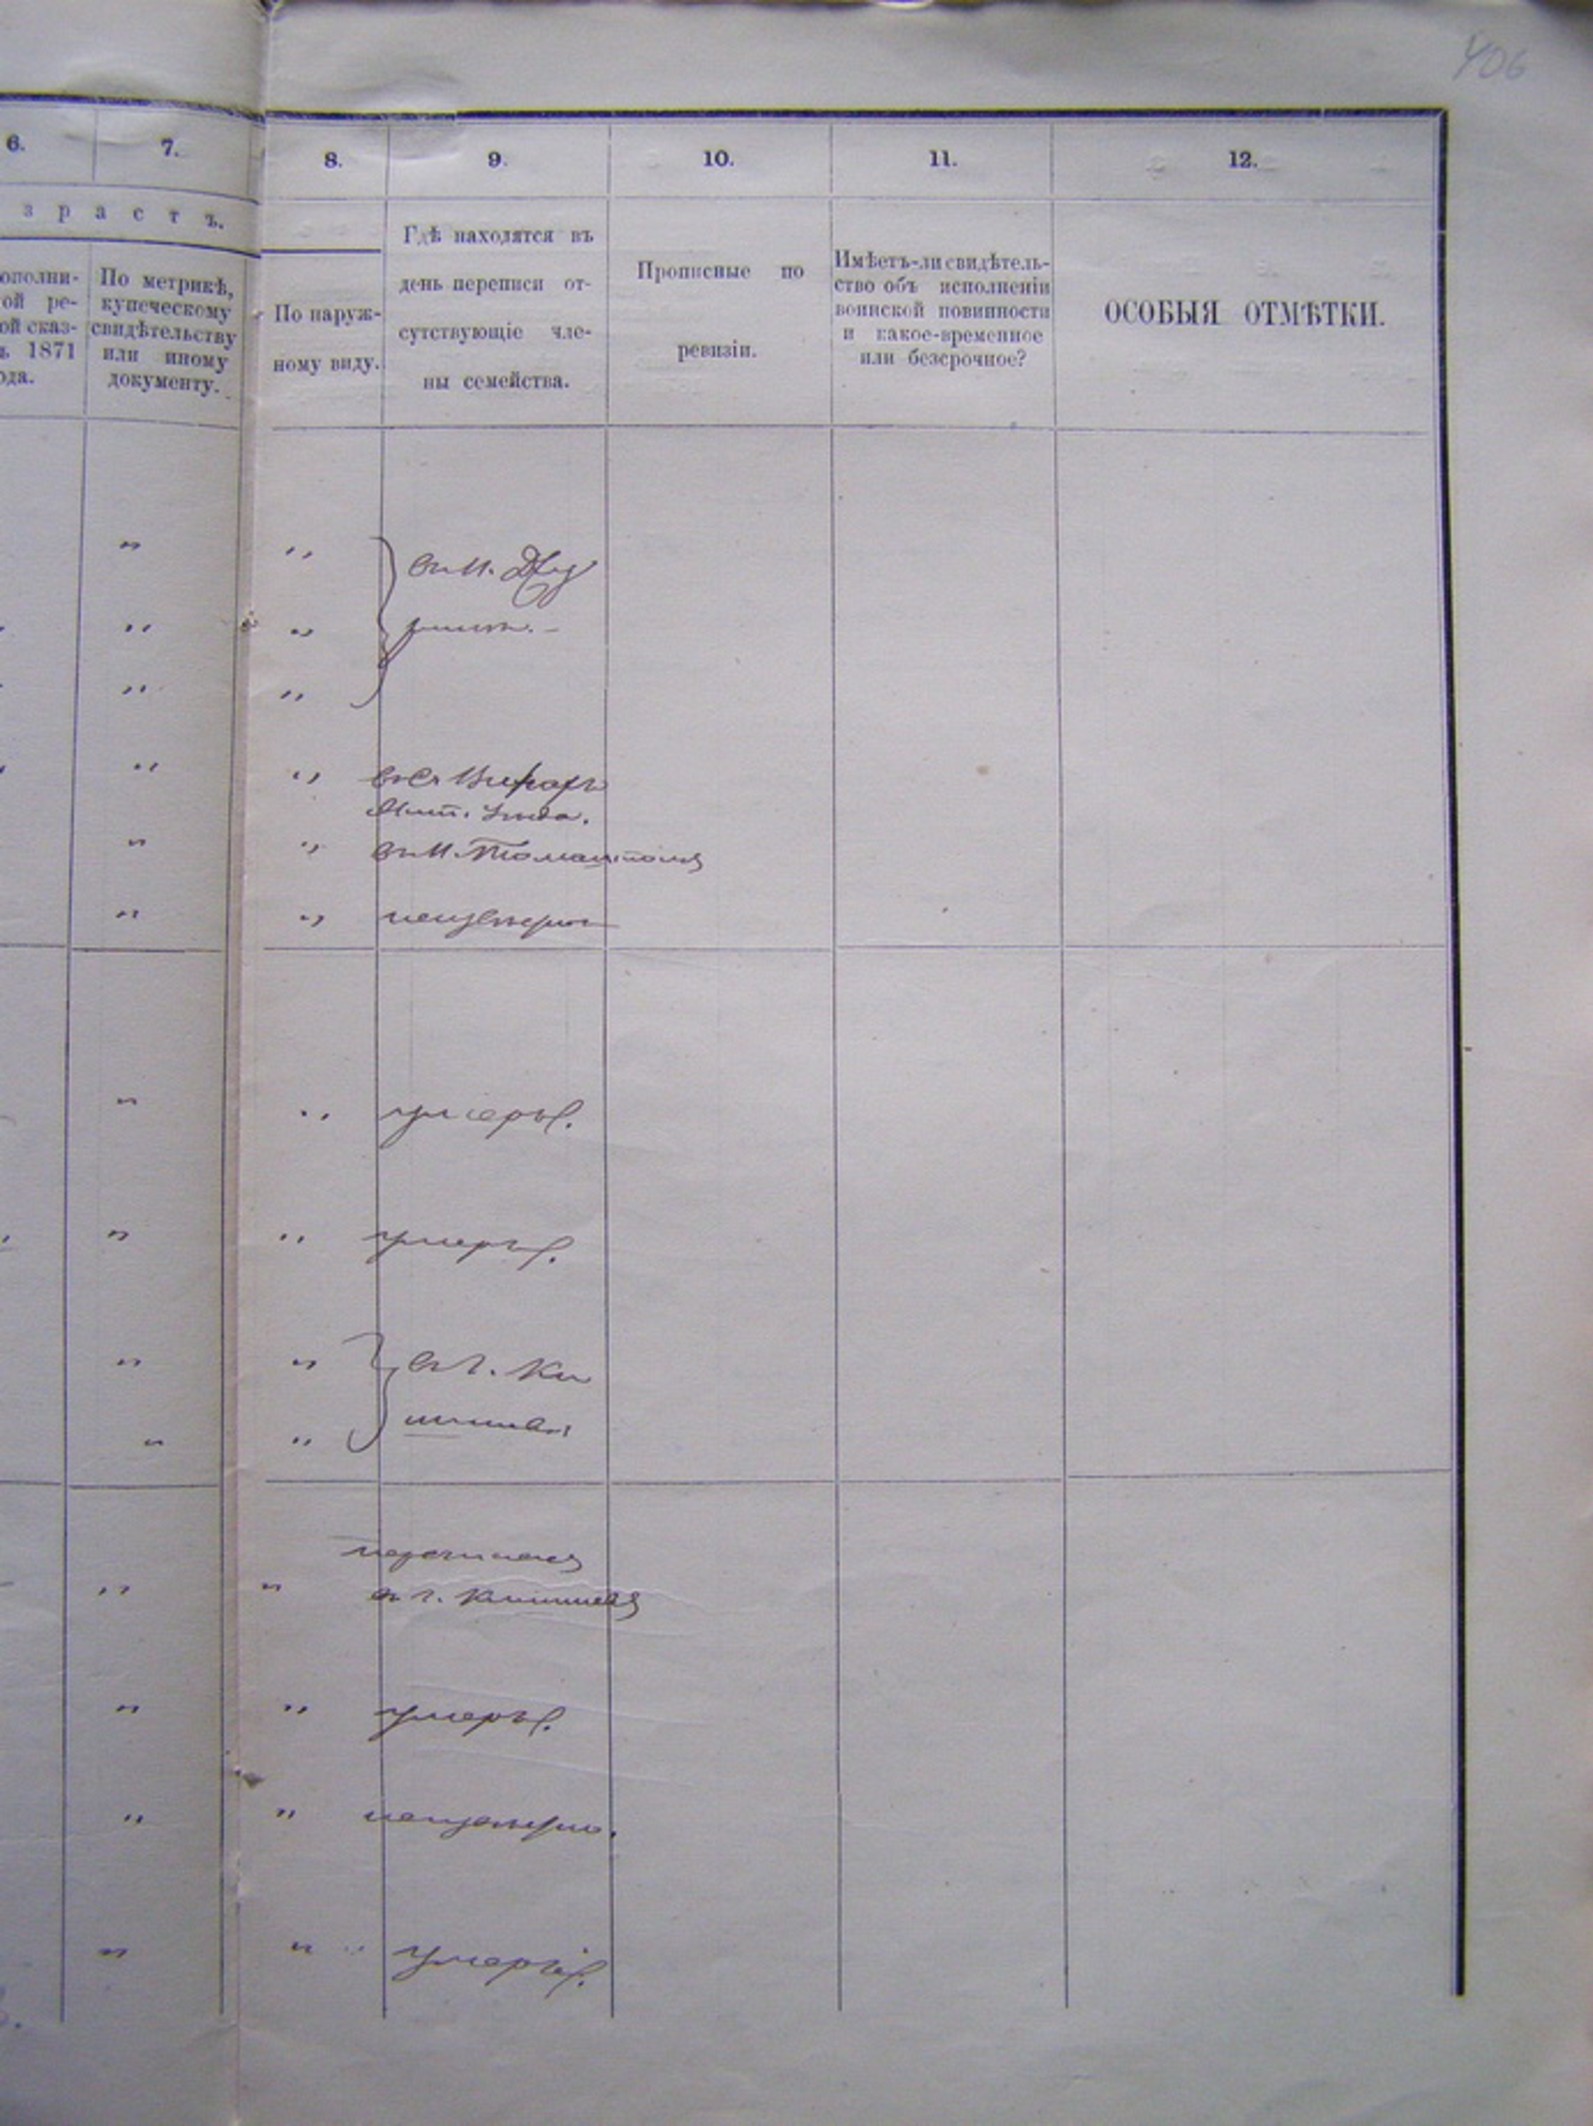 406
6. 7. 8. 9. 10. 11. 12.
з р а с т ъ.
ополни-
ой ре-
ой сказ-
ъ 1871
ода.
По метрикѣ,
купеческому
свидѣтельству
или иному
документу.
По наруж-
ному виду.
Гдѣ находятся въ
день переписи от-
сутствующіе чле-
ны семейства.
Прописные по
ревизіи.
Имѣетъ-ли свидѣтель-
ство объ исполненіи
воинской повинности
и какое-временное
или безсрочное?
ОСОБЫЯ ОТМѢТКИ.
" " въ м.
" "
" "
" " въ
" " въ м. Томашполѣ
" " неизвѣстно
" " умеръ.
" " умеръ.
" " въ г. Ки
" " шиневѣ
" " въ г. Кишиневѣ
" " умеръ.
" " неизвѣстно.
" " умеръ.